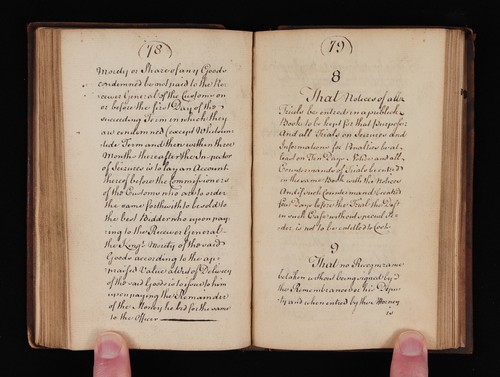 78
Moiety or Share of any Goods
condemned be not paid to the Re
ceiver General of the Customs on
or before the first Day of the
succeeding Term in which they
are condemned (except Whitsun
tide Term and then within three
Months thereafter the Inspector
of Seizures is to lay an Account
thereof before the Commissioners
of the Customs who are to order
the same forthwith to be sold to
the best Bidder who upon pay
ing to the Receiver General
the Kings Moiety of the said
Goods according to the ap
praised Value at the Delivery
of the said Goods is to them
upon paying the Remainder
of the Money he bid for the same
to the Officer
79
8
That Notices of all
Trials be entred in a publick
Book to be kept for that purpose
And all Trials on Seizures and
Informations for Penalties be at
least on Ten Days Notice and all
Countermands of Trials be entred
in the same Book with the Notices
And if such Countermand be not
four Days before the Trial the Deft
in such Case without special Or
der is not to be entitled to Costs
9
That no Recognizance
be taken without being signed by
the Remembrancer or his Depu
ty and when entred by the Attorney
is